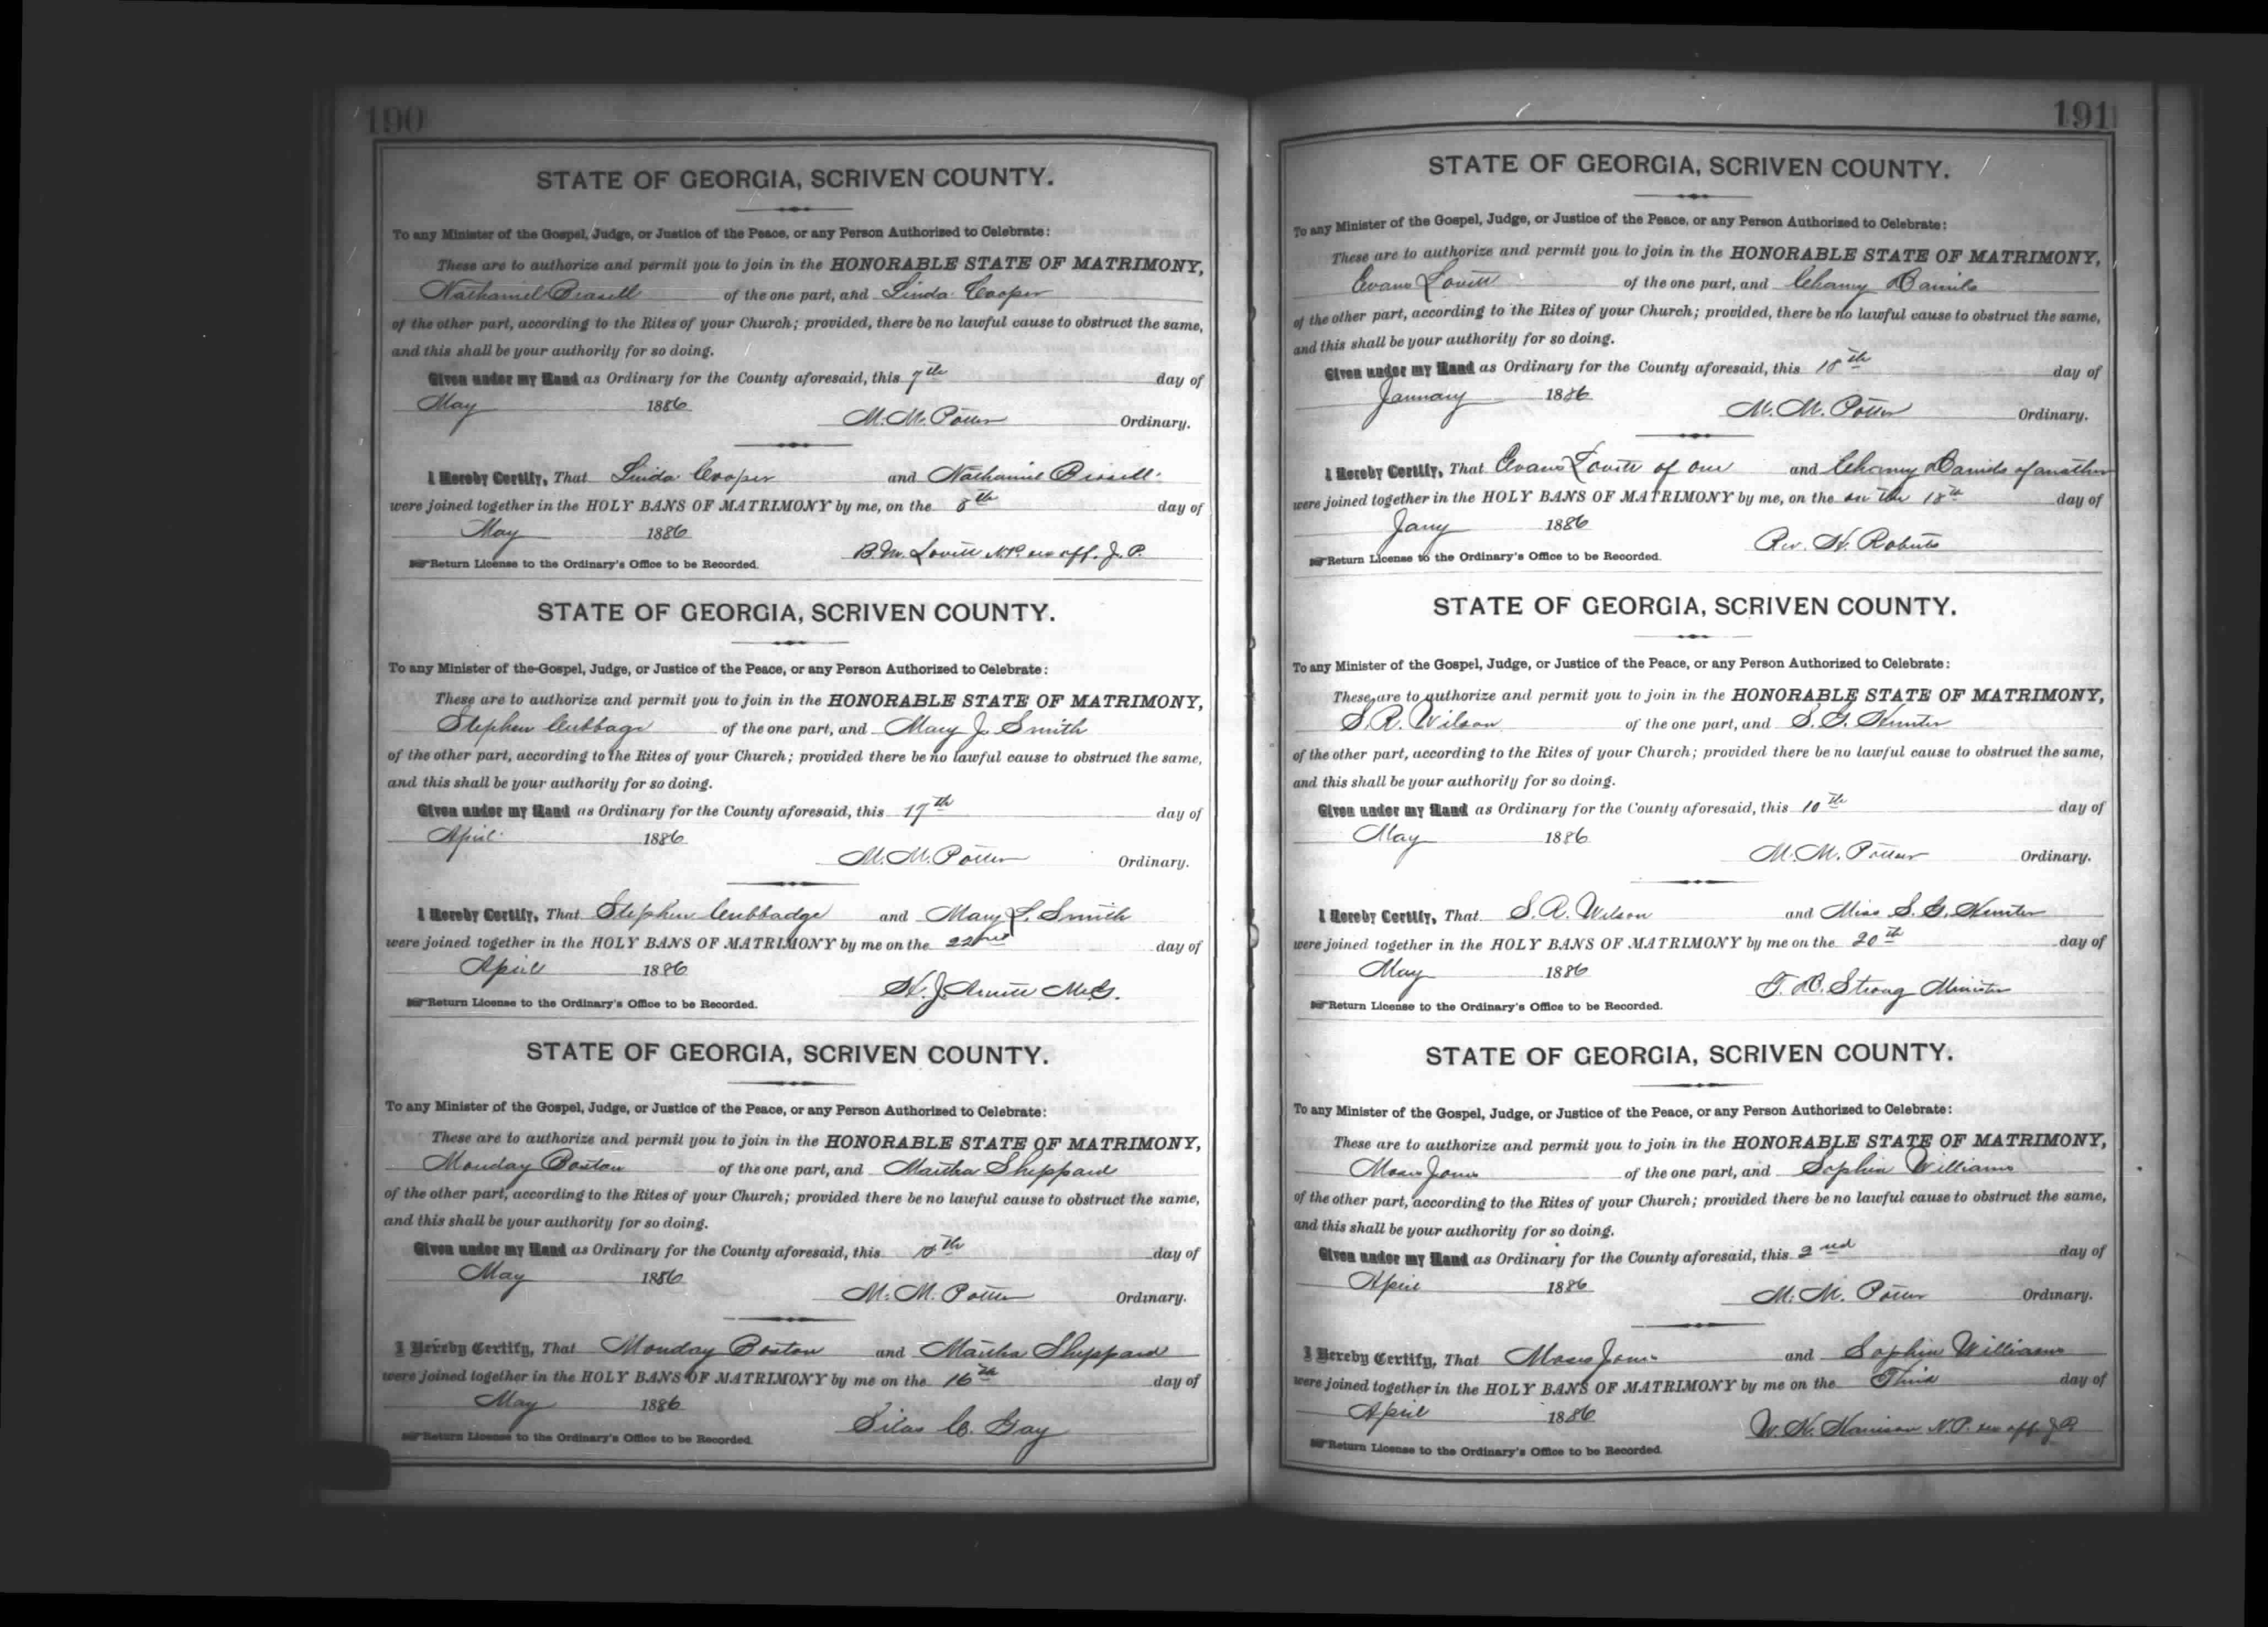 190
STATE OF GEORGIA, SCRIVEN COUNTY.
To any Minister of the Gospel, Judge, or Justice of the Peace, or any Person Authorized to Celebrate:
These are to authorize and permit you to join in the HONORABLE STATE OF MATRIMONY,
Nathaniel of the one part, and Linda Cooper
of the other part, according to the Rites of your Church; provided, there be no lawful cause to obstruct the same,
and this shall be your authority for so doing.
Given under my Hand as Ordinary for the County aforesaid, this 7th day of
May 1886
M. M. Potter Ordinary.
I Hereby Certify, That Linda Cooper and Nathaniel
were joined together in the HOLY BANS OF MATRIMONY by me, on the 8th day of
May 1886
B. M. Lovett N.P. exoff. J.P.
Return License to the Ordinary's Office to be Recorded.
STATE OF GEORGIA, SCRIVEN COUNTY.
To any Minister of the Gospel, Judge, or Justice of the Peace, or any Person Authorized to Celebrate:
These are to authorize and permit you to join in the HONORABLE STATE OF MATRIMONY,
Stephen Cubbage of the one part, and Mary J. Smith
of the other part, according to the Rites of your Church; provided there be no lawful cause to obstruct the same,
and this shall be your authority for so doing.
Given under my Hand as Ordinary for the County aforesaid, this 17th day of
April 1886
M. M. Potter Ordinary.
I Hereby Certify, That Stephen Cubbadge and Mary Smith
were joined together in the HOLY BANS OF MATRIMONY by me on the 22nd day of
April 1886
H. J. Arnett M.G.
Return License to the Ordinary's Office to be Recorded.
STATE OF GEORGIA, SCRIVEN COUNTY.
To any Minister of the Gospel, Judge, or Justice of the Peace, or any Person Authorized to Celebrate:
These are to authorize and permit you to join in the HONORABLE STATE OF MATRIMONY,
Monday Boston of the one part, and Martha Sheppard
of the other part, according to the Rites of your Church; provided there be no lawful cause to obstruct the same,
and this shall be your authority for so doing.
Given under my Hand as Ordinary for the County aforesaid, this day of
May 1886
M. M. Potter Ordinary.
I Hereby Certify, That Monday Boston and Martha Sheppard
were joined together in the HOLY BANS OF MATRIMONY by me on the 16th day of
May 1886
Silas C. Gay
Return License to the Ordinary's Office to be Recorded.
191
STATE OF GEORGIA, SCRIVEN COUNTY.
To any Minister of the Gospel, Judge, or Justice of the Peace, or any Person Authorized to Celebrate:
These are to authorize and permit you to join in the HONORABLE STATE OF MATRIMONY,
Evans Lovett of the one part, and Charny Daniels
of the other part, according to the Rites of your Church; provided, there be no lawful cause to obstruct the same,
and this shall be your authority for so doing.
Given under my Hand as Ordinary for the County aforesaid, this 18th day of
January 1886
M. M. Potter Ordinary.
I Hereby Certify, That Evans Lovett of one and Charny Daniels of another
were joined together in the HOLY BANS OF MATRIMONY by me, on the on the 18th day of
Jany 1886
Rev. H. Roberts
Return License to the Ordinary's Office to be Recorded.
STATE OF GEORGIA, SCRIVEN COUNTY.
To any Minister of the Gospel, Judge, or Justice of the Peace, or any Person Authorized to Celebrate:
These are to authorize and permit you to join in the HONORABLE STATE OF MATRIMONY,
S. R. Wilson of the one part, and S. G. Hunter
of the other part, according to the Rites of your Church; provided there be no lawful cause to obstruct the same,
and this shall be your authority for so doing.
Given under my Hand as Ordinary for the County aforesaid, this 10th day of
May 1886
M. M. Potter Ordinary.
I Hereby Certify, That S. R. Wilson and Miss S. G. Hunter
were joined together in the HOLY BANS OF MATRIMONY by me on the 20th day of
May 1886
T. B. Strong Minister
Return License to the Ordinary's Office to be Recorded.
STATE OF GEORGIA, SCRIVEN COUNTY.
To any Minister of the Gospel, Judge, or Justice of the Peace, or any Person Authorized to Celebrate:
These are to authorize and permit you to join in the HONORABLE STATE OF MATRIMONY,
Moses Jones of the one part, and Sophia Williams
of the other part, according to the Rites of your Church; provided there be no lawful cause to obstruct the same,
and this shall be your authority for so doing.
Given under my Hand as Ordinary for the County aforesaid, this 2nd day of
April 1886
M. M. Potter Ordinary.
I Hereby Certify, That Moses Jones and Sophia Williams
were joined together in the HOLY BANS OF MATRIMONY by me on the Third day of
April 1886
W. H. Harrison N.P. exoff. J.P.
Return License to the Ordinary's Office to be Recorded.